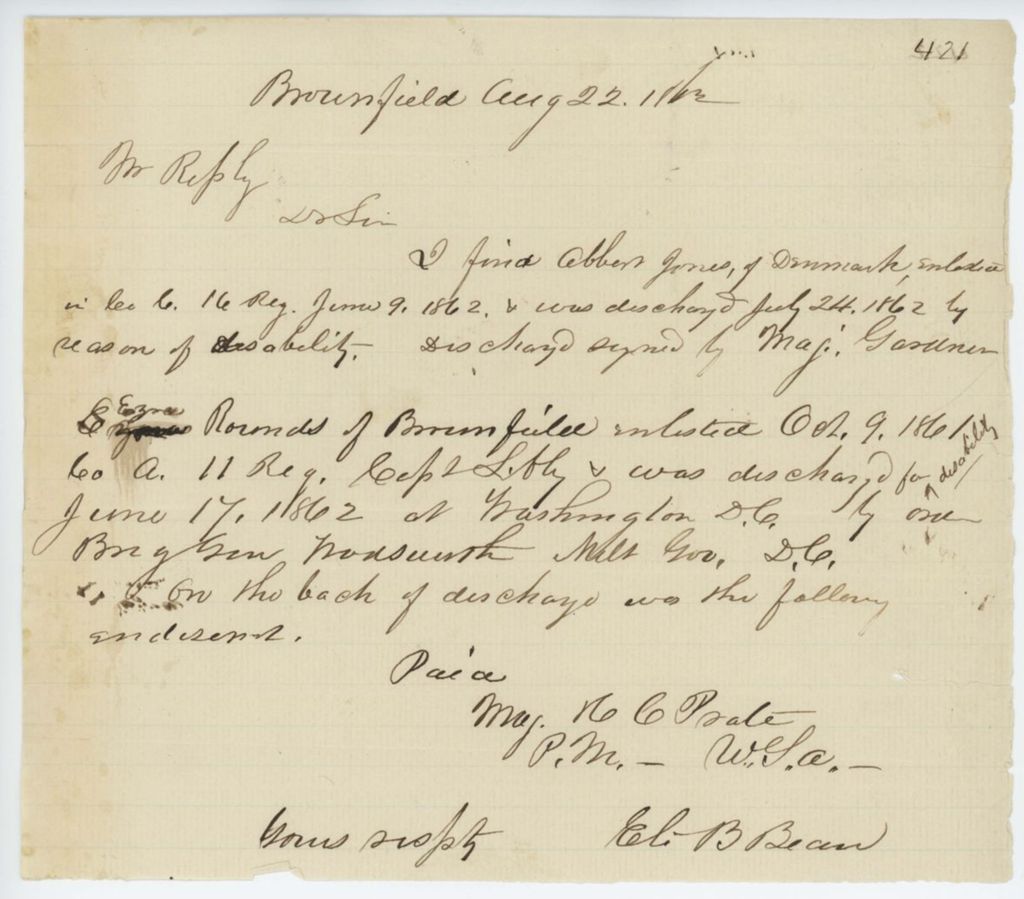 421
Brownfield Aug 22. 1862
Mr Reply
Dr Sir
I find Albert Jones, of Denmark, enlisted
in Co C. 16 Reg. June 9. 1862. & was dischargd July 24. 1862 by
reason of disability. Dischargd signed by Maj. Gardner
Ezra
Rounds of Brownfield enlisted Oct. 9. 1861
Co A. 11 Reg. Capt Libby & was dischargd for disability
June 17. 1862 at Washington D.C. by order
Brig Gen Wadsworth Milt Gov. D.C.
On the back of discharge was the following
endorsemt.
Paid
Maj. H C Prate
P.M. — U.S.A. —
Yours respty Eli B Bean